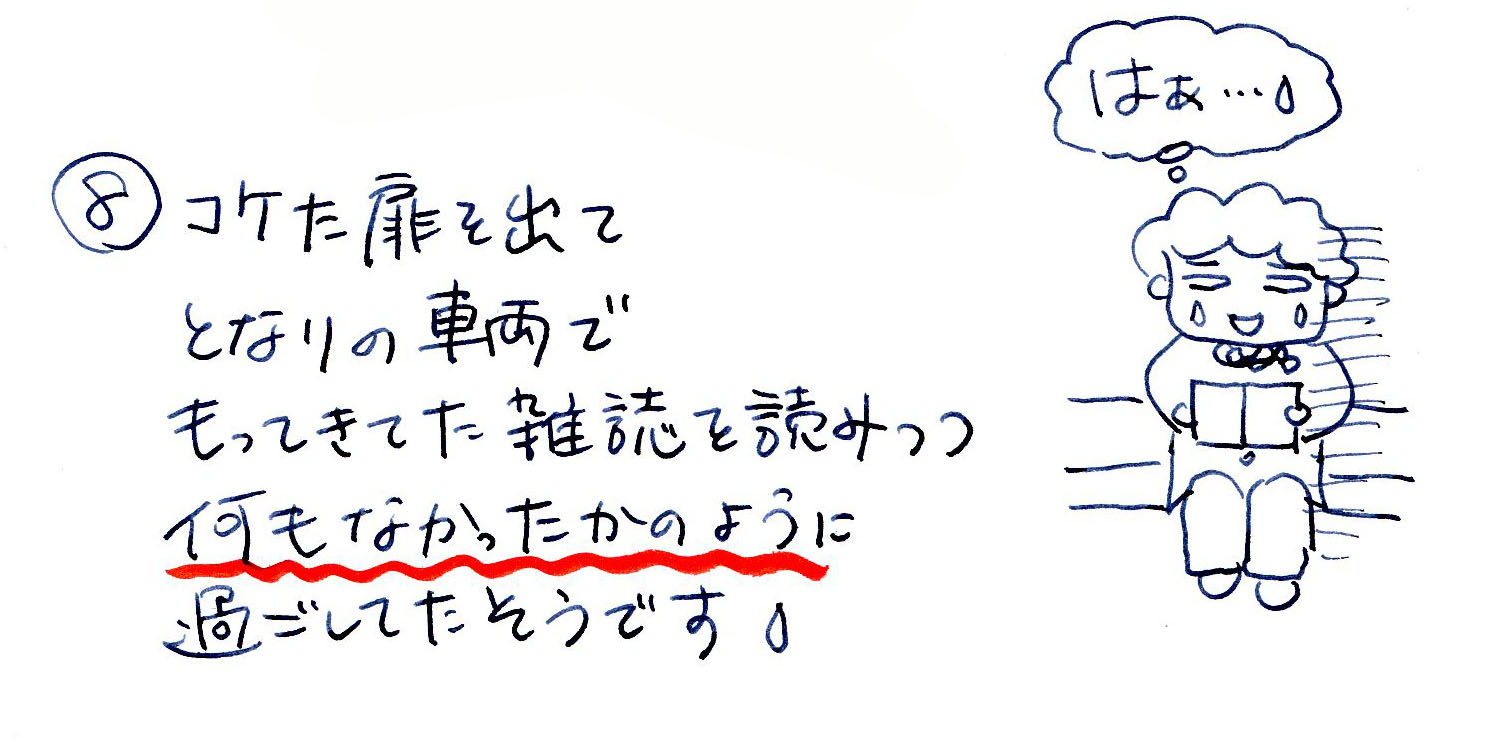 ⑧ コケた扉を出て
となりの車両で
もってきてた雑誌を読みつつ
何もなかったかのように
過ごしてたそうです
はぁ…